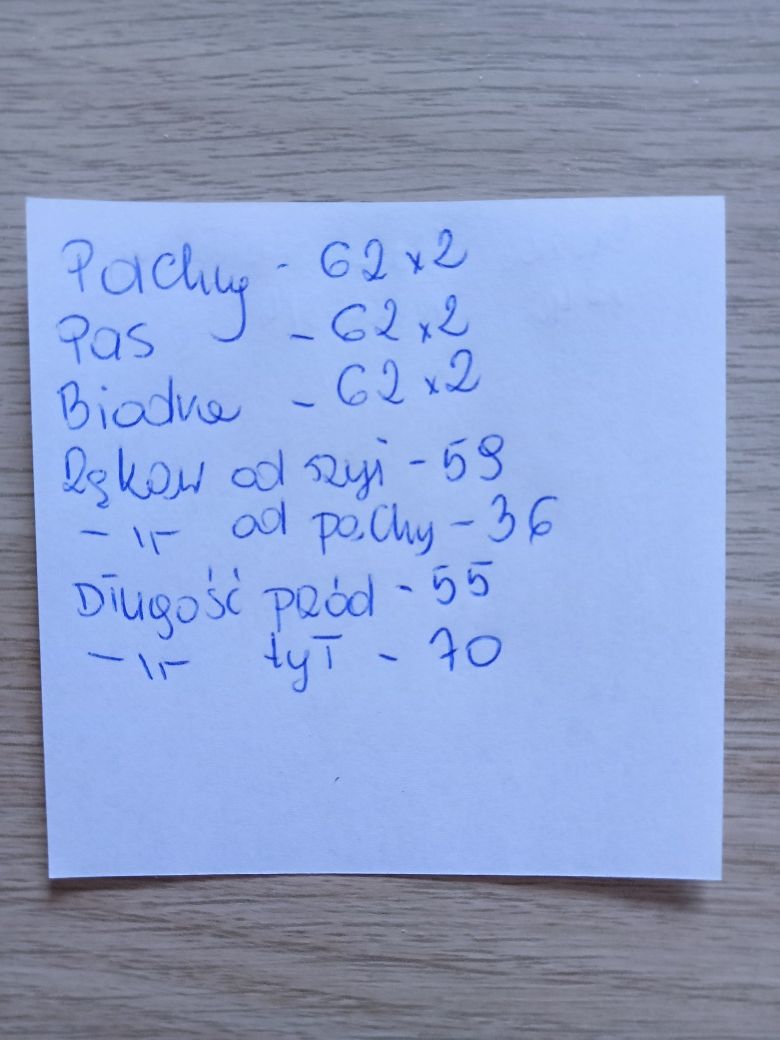 Pachy - 62 x 2
Pas - 62 x 2
Biodra - 62 x 2
Rękaw od szyi - 59
-11- od pachy - 36
Długość przód - 55
-11- tył - 70